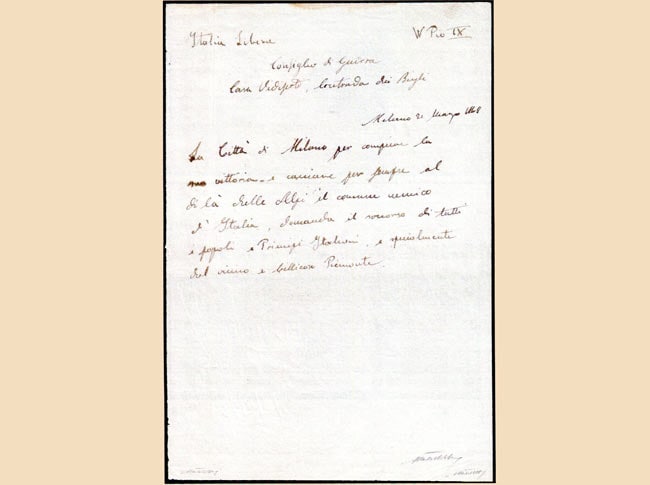 Italia Libera
W Pio IX
Consiglio di Guerra
Casa Vidiserti, Contrada dei Bigli
Milano 21 Marzo 1848
La Città di Milano per compiere la
sua vittoria e cacciare per sempre al
di là delle Alpi il comune nemico
d'Italia, domanda il soccorso di tutti
i popoli e Principi Italiani, e specialmente
del vicino e bellicoso Piemonte.